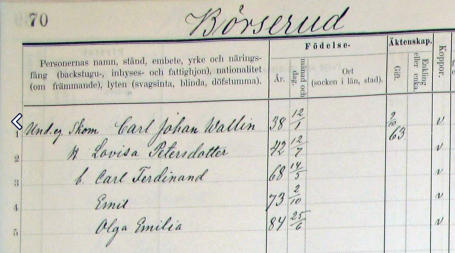 70 Börserud
Personernas namn, stånd, embete, yrke och närings-
fång (backstugu-, inhyses- och fattighjon), nationalitet
(om främmande), lyten (svagsinta, blinda, döfstumma).
Födelse-
År. månad och dag. Ort (socken i län, stad).
Äktenskap.
Gift. Enkling eller enka.
Koppor.
1 Und.eg Skom Carl Johan Wallin 38 12/1 2/10 63 v
2 H Lovisa Petersdotter 42 12/7 v
3 b. Carl Ferdinand 68 14/5 v
4 Emil 73 2/10 v
5 Olga Emilia 84 25/6 v